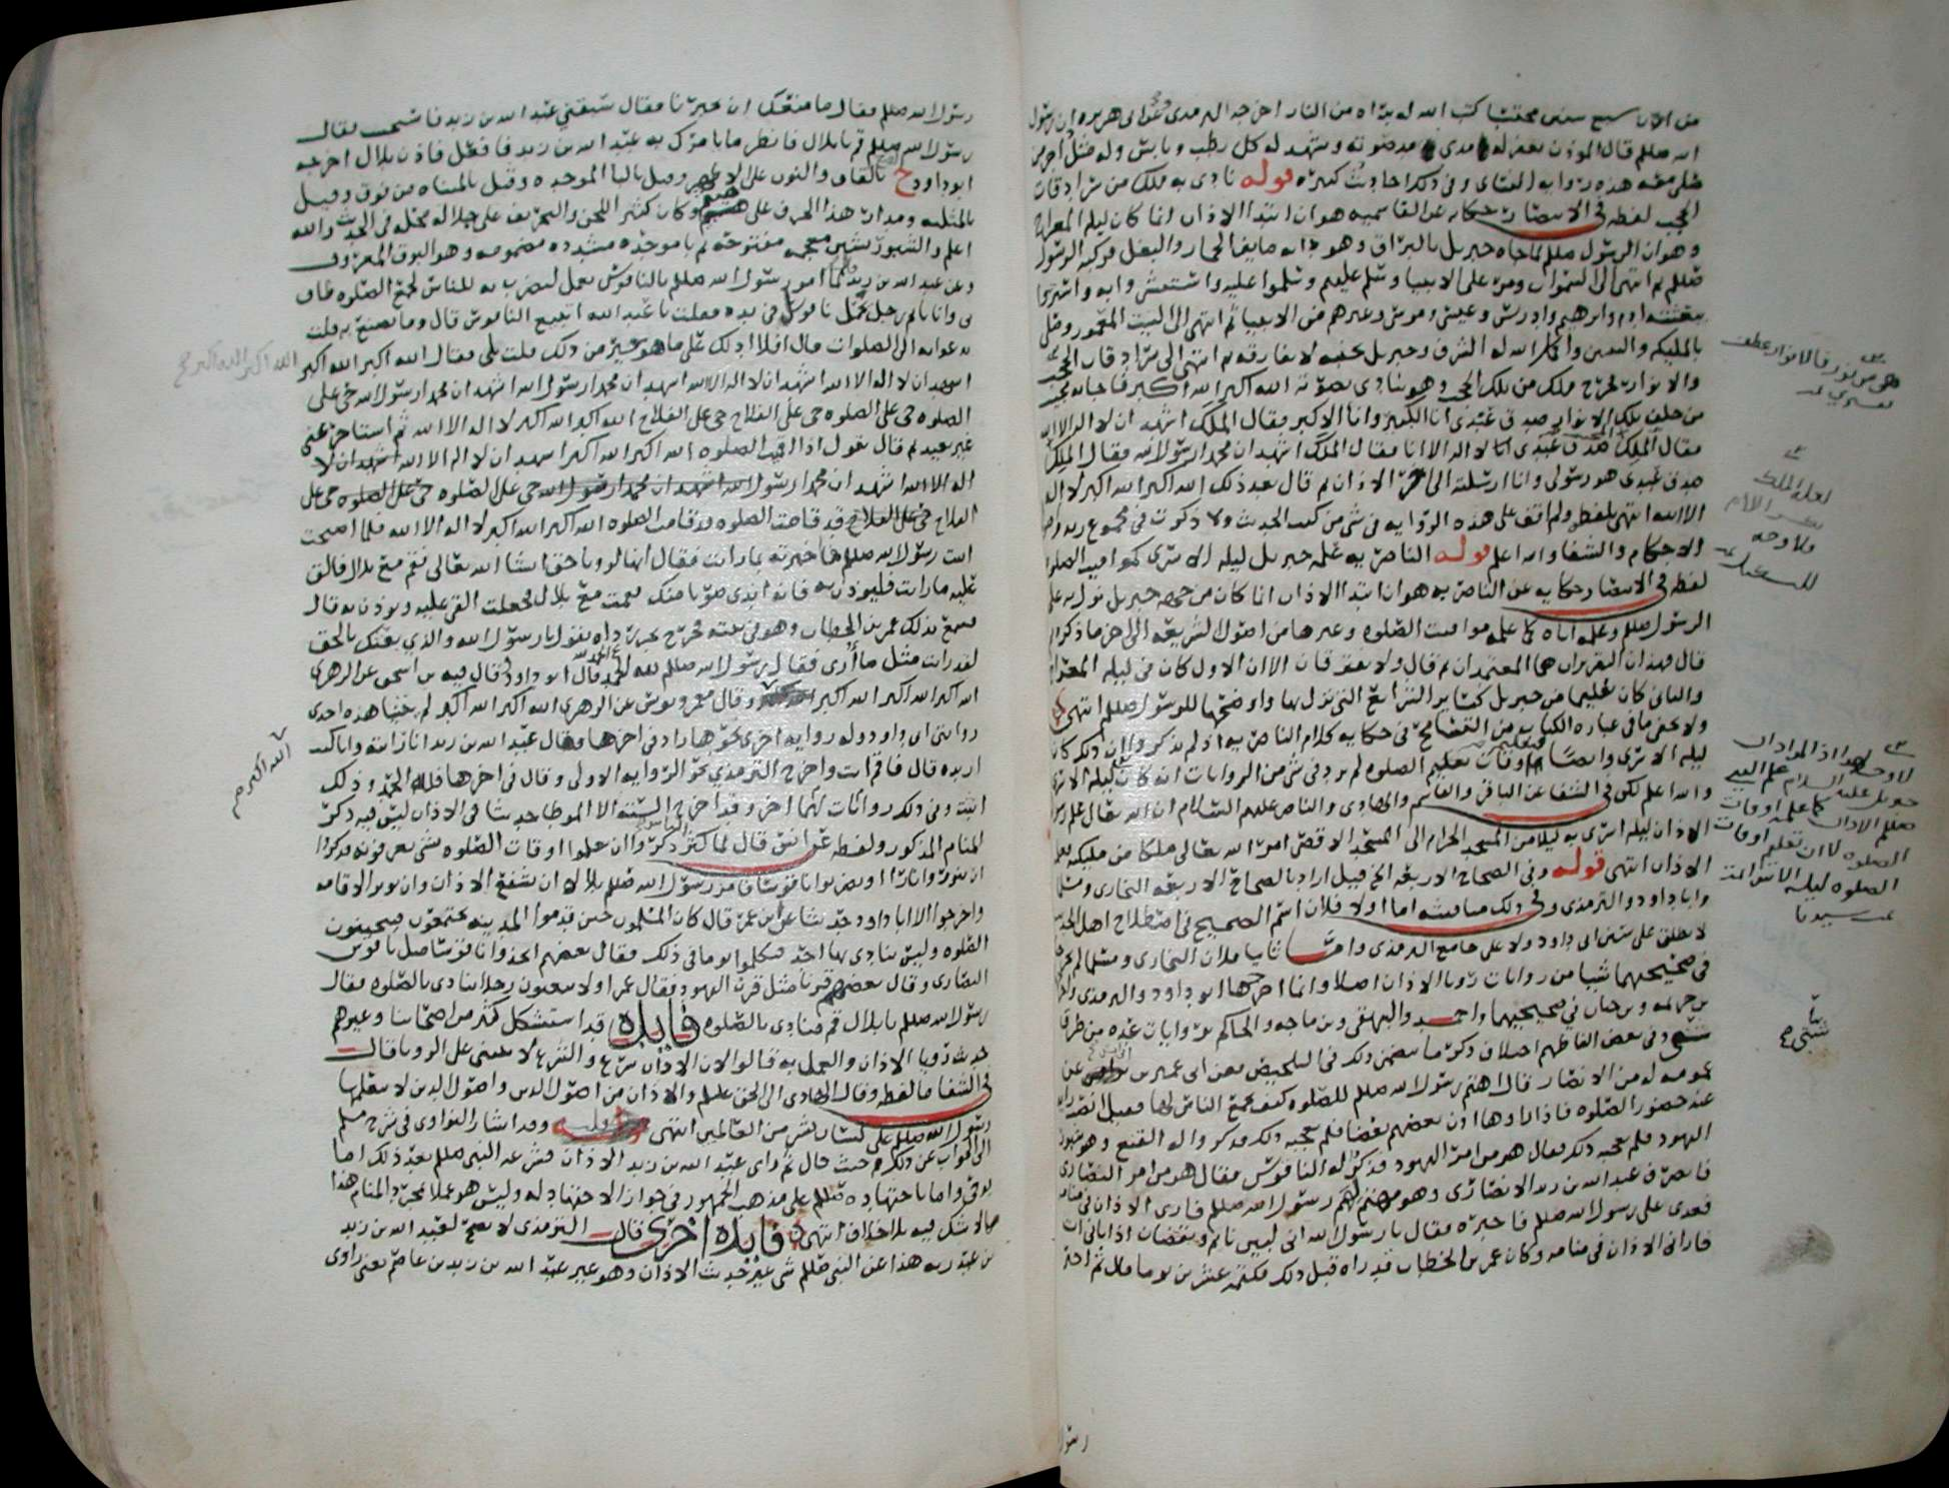 من اذن سبع سنين محتسبا كتب الله له براه من النار اخرجه الترمذي وعن ابي هريره ان رسول
الله صللم قال الموذن يغفر له مدى صوته ويشهد له كل رطب ويابس وله مثل اجر من
صلى معه هذه روايه النساي وفي ذلك احاديث كثيره قوله نادى به ملك من سرادقات
الحجب لفظه في الانتصار حكايه عن القاسميه هو ان ابتدا الاذان انما كان ليله المعراج
وهو ان الرسول صللم لما جاه جبريل بالبراق وهو دابه مابين الحمار والبغل فركبه الرسول
صللم ثم انتهى الى السموات ومر على الانبيا وسلم عليهم وسلموا عليه واستبشروا به
ادم وابرهيم وادريس وعيسى وموسى وغيرهم من الانبيا ثم انتهى الى البيت المعمور وصلى
بالمليكه والنبيين واكمل الله له الشرف وجبريل لا يفارقه ثم انتهى الى سرادقات الحجب
والانوار فخرج ملك من تلك الحجب وهو ينادي بصوته الله اكبر الله اكبر فاجابه مجيب
من خلف تلك الانوار صدق عبدي انا الكبير وانا الاكبر فقال الملك اشهد ان لا اله الا الله
فقال الملك صدق عبدي انا لا اله الا انا فقال الملك اشهد ان محمدا رسول الله فقال الملك
صدق عبدي هو رسولي وانا ارسلته الى اخر الاذان ثم قال بعد ذلك الله اكبر الله اكبر لا اله
الا الله انتهى بلفظه ولم اقف على هذه الروايه في شي من كتب الحديث ولا ذكرت في مجموع زيد
الاحكام والشفا والله اعلم قوله الناصريه علمه جبريل ليله الاسرى كمواقيت الصلوه
لفظه في الانتصار حكايه عن الناصريه هو ان ابتدا الاذان انما كان من جهه جبريل نزل به على
الرسول صللم وعلمه اياه كما علمه مواقيت الصلوه وغيرها من اصول الشريعه الى اخر ما ذكره
قال فهذان التقريران هما المعتمدان ثم قال ولا يفترقان الا ان الاول كان في ليله المعراج
والثاني كان تعليما من جبريل كساير الشرايع التي نزل بها واوضحها للرسول صللم انتهى
ولا يخفى ما في عباره الكتاب من التسامح في حكايه كلام الناصريه اذ لم يذكروا ان ذلك كان
ليله الاسرى وايضا فاوقات تعليم الصلوه لم يرد في شي من الروايات انه كان ليله الاسرى
والله اعلم لكن في الشفا عن الباقر والقاسم والهادي والناصر عليهم السلام ان الله تعالى علم رسوله
الاذان ليله اسرى به ليلا من المسجد الحرام الى المسجد الاقصى امر الله تعالى ملكا من مليكته
الاذان انتهى قوله وفي الصحاح الاربعه الخ قيل اراد بالصحاح الاربعه البخاري ومسلما
وابا داود والترمذي وفي ذلك مناقشه اما اولا فلان اسم الصحيح في اصطلاح اهل الحديث
لا يطلق على سنن ابي داود ولا على جامع الترمذي واما ثانيا فلان البخاري ومسلما لم يخرجا
في صحيحيهما شيا من روايات رويا الاذان اصلا وانما اخرجها ابو داود والترمذي
بن خزيمه وبن حبان في صحيحيهما واحمد والبيهقي وبن ماجه والحاكم بروايات عده من طرق
شتى وفي بعض الفاظهم اختلاف ذكر ما يتضمن ذلك في التلخيص فعن ابي عمير بن انس عن
عمومه له من الانصار قال اهتم رسول الله صللم للصلوه كيف يجمع الناس لها فقيل انصب رايه
عند حضور الصلوه فاذا راوها اذن بعضهم بعضا فلم يعجبه ذلك فذكروا له القنع وهو شبور
اليهود فلم يعجبه ذلك فقال هو من امر اليهود فذكر له الناقوس فقال هو من امر النصارى
فانصرف عبد الله بن زيد الانصاري وهو مهتم لهم رسول الله صللم فاري الاذان في منامه
فغدى على رسول الله صللم فاخبره فقال يا رسول الله اني لبين نايم ويقضان اذ اتاني ات
فاراني الاذان في منامه وكان عمر بن الخطاب قد راه قبل ذلك فكتمه عشرين يوما قال ثم اخبر
رسول
شتى ح
رسول الله صللم فقال ما منعك ان تخبرنا فقال سبقني عبد الله بن زيد فاستحييت فقال
رسول الله صللم قم يا بلال فانظر ما يامرك به عبد الله بن زيد فافعل فاذن بلال اخرجه
ابو داود ح بالقاف والنون على الاصح وقيل بالبا الموحده وقيل بالمثناه من فوق وقيل
بالمثلثه ومدار هذا الحرف على هشيم وكان كثير اللحن والتحريف على جلاله محله في الحديث والله
اعلم والشبور بشين معجمه مفتوحه ثم با موحده مشدده مضمومه وهو البوق المعروف
وعن عبد الله بن زيد لما امر رسول الله صللم بالناقوس يعمل ليضرب به للناس لجمع الصلوه طاف
بي وانا نايم رجل يحمل ناقوسا في يده فقلت يا عبد الله اتبيع الناقوس قال وما تصنع به قلت
ندعوا به الى الصلوات قال افلا ادلك على ما هو خير من ذلك قلت بلى فقال الله اكبر الله اكبر
الله اكبر الله اكبر ح
اشهد ان لا اله الا الله اشهد ان لا اله الا الله اشهد ان محمدا رسول الله اشهد ان محمدا رسول الله حي على
الصلوه حي على الصلوه حي على الفلاح حي على الفلاح الله اكبر الله اكبر لا اله الا الله ثم استاخر عني
غير بعيد ثم قال تقول اذا اقيمت الصلوه الله اكبر الله اكبر اشهد ان لا اله الا الله اشهد ان لا
اله الا الله اشهد ان محمدا رسول الله اشهد ان محمدا رسول الله حي على الصلوه حي على الصلوه حي على
الفلاح حي على الفلاح قد قامت الصلوه قد قامت الصلوه الله اكبر الله اكبر لا اله الا الله فلما اصبحت
اتيت رسول الله صللم فاخبرته بما رايت فقال انها لرويا حق ان شا الله تعالى فقم مع بلال فالق
عليه ما رايت فليوذن به فانه اندى صوتا منك فقمت مع بلال فجعلت القي عليه ويوذن به قال
فسمع بذلك عمر بن الخطاب وهو في بيته فخرج يجر رداه يقول يا رسول الله والذي بعثك بالحق
لقد رايت مثل ما اري فقال رسول الله صللم لله الحمد قال ابو داود وقال فيه بن اسحق عن الزهري
الله اكبر الله اكبر الله اكبر الله اكبر وقال معمر ويونس عن الزهري الله اكبر الله اكبر لم يثنيا هذه احدى
الله اكبر ص
روايتي ابي داود وله روايه اخرى نحوها زاد في اخرها فقال عبد الله بن زيد انا رايته وانا كنت
اريده قال فاقم انت واخرج الترمذي نحو الروايه الاولى وقال في اخرها فلله الحمد وذلك
اثبت وفي ذلك روايات لهما اخر وقد اخرج السته الا الموطا حديثا في الاذان ليس فيه ذكر
المنام المذكور ولفظه عن انس قال لما كثر الناس ذكروا ان يعلموا اوقات الصلوه بشي يعرفونه فذكروا
ان ينوروا نارا او يضربوا ناقوسا فامر رسول الله صللم بلالا ان يشفع الاذان وان يوتر الاقامه
واخرجوا الا ابا داود حديثا عن ابن عمر قال كان المسلمون حين قدموا المدينه يجتمعون فيتحينون
الصلوه وليس ينادي بها احد فتكلموا يوما في ذلك فقال بعضهم اتخذوا ناقوسا مثل ناقوس
النصارى وقال بعضهم قرنا مثل قرن اليهود فقال عمر اولا تبعثون رجلا ينادي بالصلوه فقال
رسول الله صللم يا بلال قم فناد بالصلوه فايده قد استشكل كثير من اصحابنا وغيرهم
حديث رويا الاذان والعمل به قالوا لان الاذان شرع والشرع لا يبتنى على الرويا قال
في الشفا ما لفظه وقال الهادي الى الحق عليلم والاذان من اصول الدين واصول الدين لا يتعلمها
رسول الله صللم على لسان بشر من العالمين انتهى وقد اشار النواوي في شرح مسلم
الى الجواب عن ذلك حيث قال ثم راى عبد الله بن زيد الاذان فشرعه النبي صللم بعد ذلك اما
بوحي واما باجتهاده صللم على مذهب الجمهور في جواز الاجتهاد له وليس هو عملا بمجرد المنام هذا
مالا شك فيه بلا اختلاف انتهى فايده اخرى قال الترمذي لا يصح لعبد الله بن زيد
بن عبد ربه هذا عن النبي صللم شي غير حديث الاذان وهو غير عبد الله بن زيد بن عاصم يعني راوي